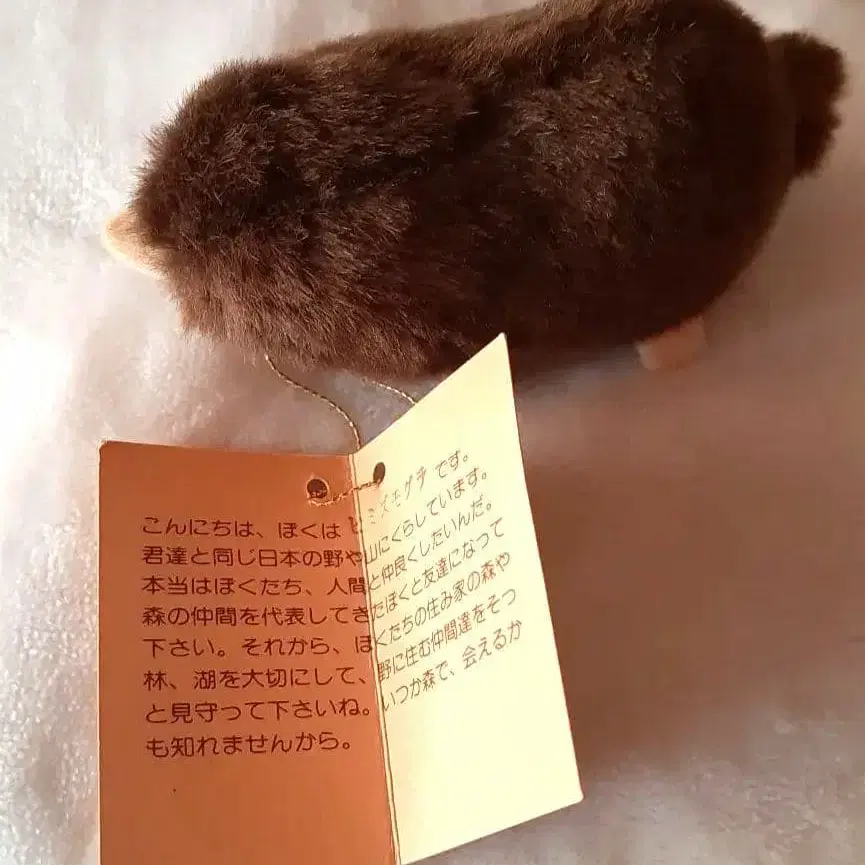 こんにちは、ぼくはヒミズモグラです。
君達と同じ日本の野や山にくらしています。
本当はぼくたち、人間と仲良くしたいんだ。
森の仲間を代表してきたぼくと友達になって
下さい。それから、ぼくたちの住み家の森や
林、湖を大切にして、野に住む仲間達をそっ
と見守って下さいね。いつか森で、会えるか
も知れませんから。